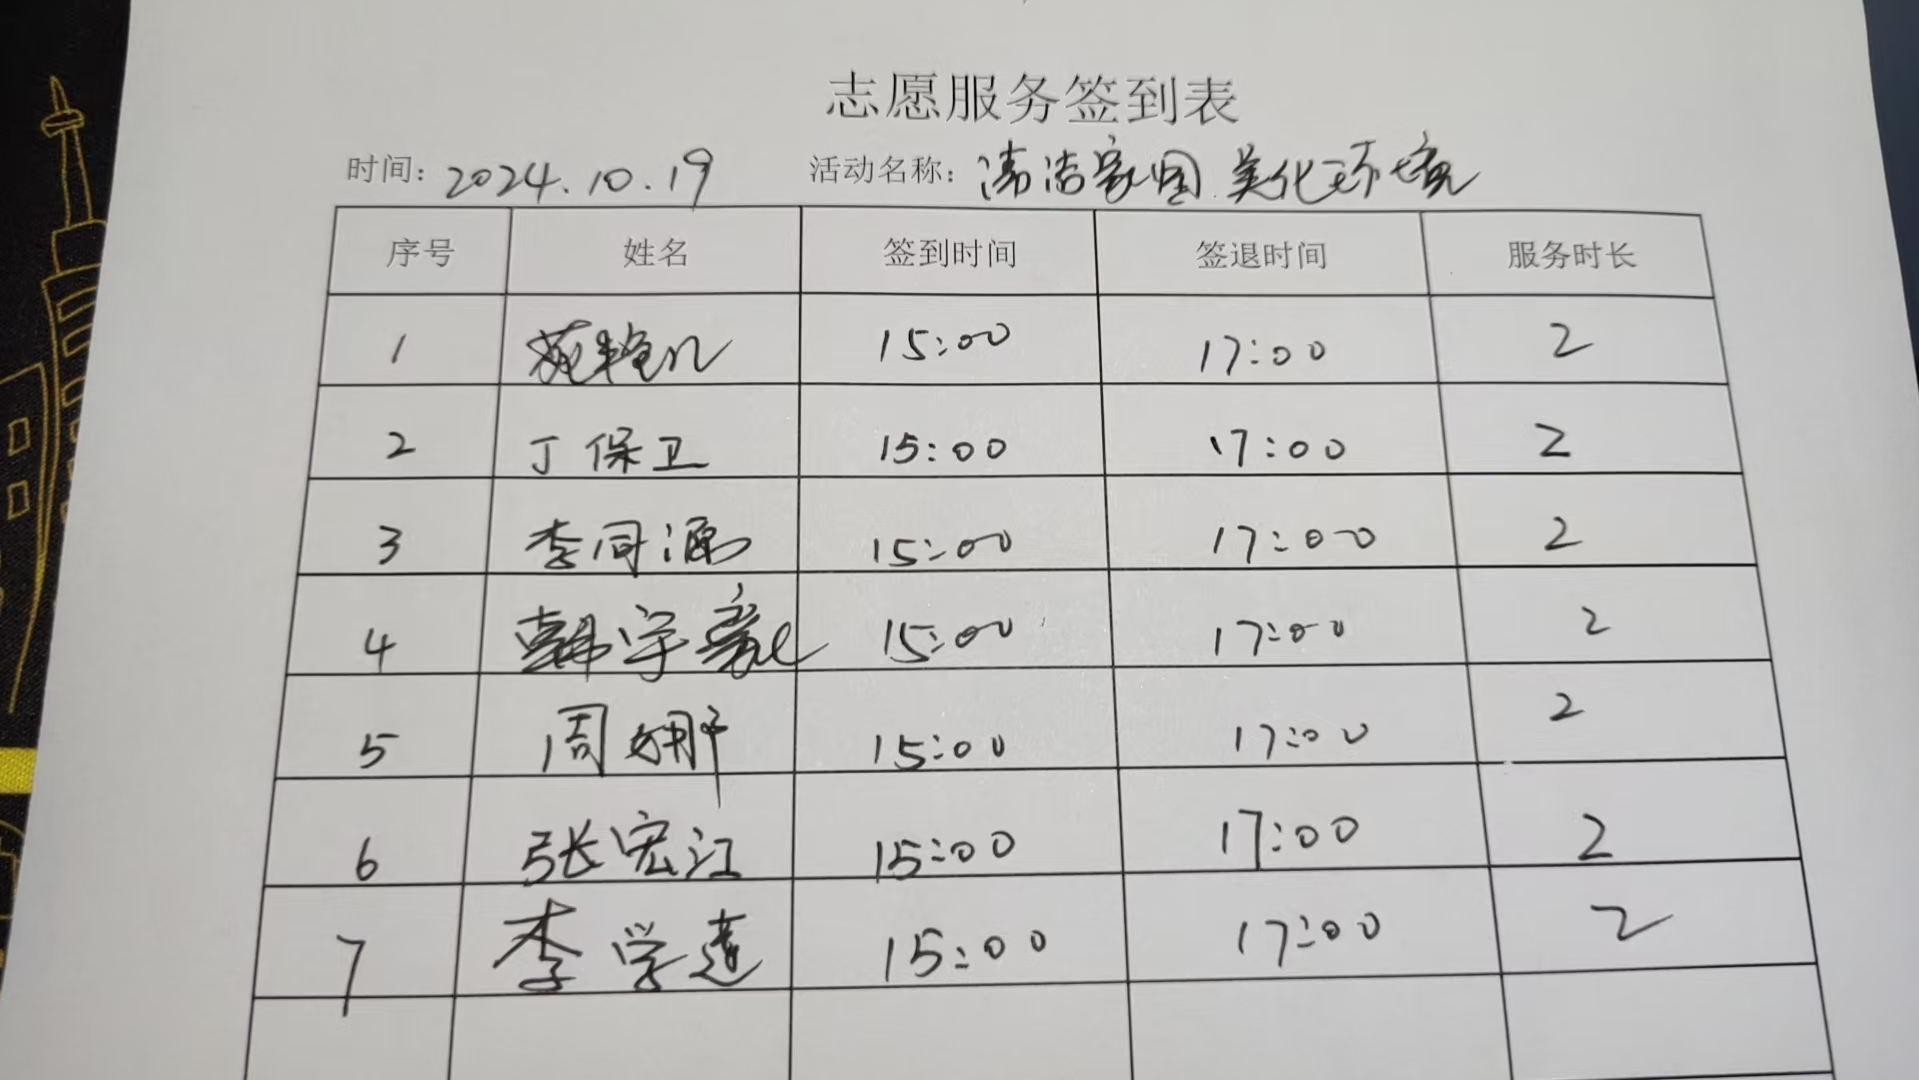 志愿服务签到表
时间: 2024.10.19 活动名称: 清洁家园 美化环境
序号 姓名 签到时间 签退时间 服务时长
1 15:00 17:00 2
2 丁保卫 15:00 17:00 2
3 李同源 15:00 17:00 2
4 韩宇 15:00 17:00 2
5 周娜 15:00 17:00 2
6 张宏江 15:00 17:00 2
7 李学莲 15:00 17:00 2